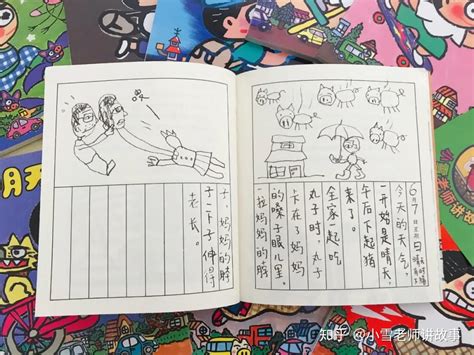 6月7日
今天的天气,
一开始是晴天,
午后下起猪
来了。
全家一起吃
丸子时,丸子
卡在了妈妈
的嗓子眼儿里。
一拉妈妈的脖
子,妈妈的脖
子一下子伸得
老长。
知乎 @小雪老师讲故事